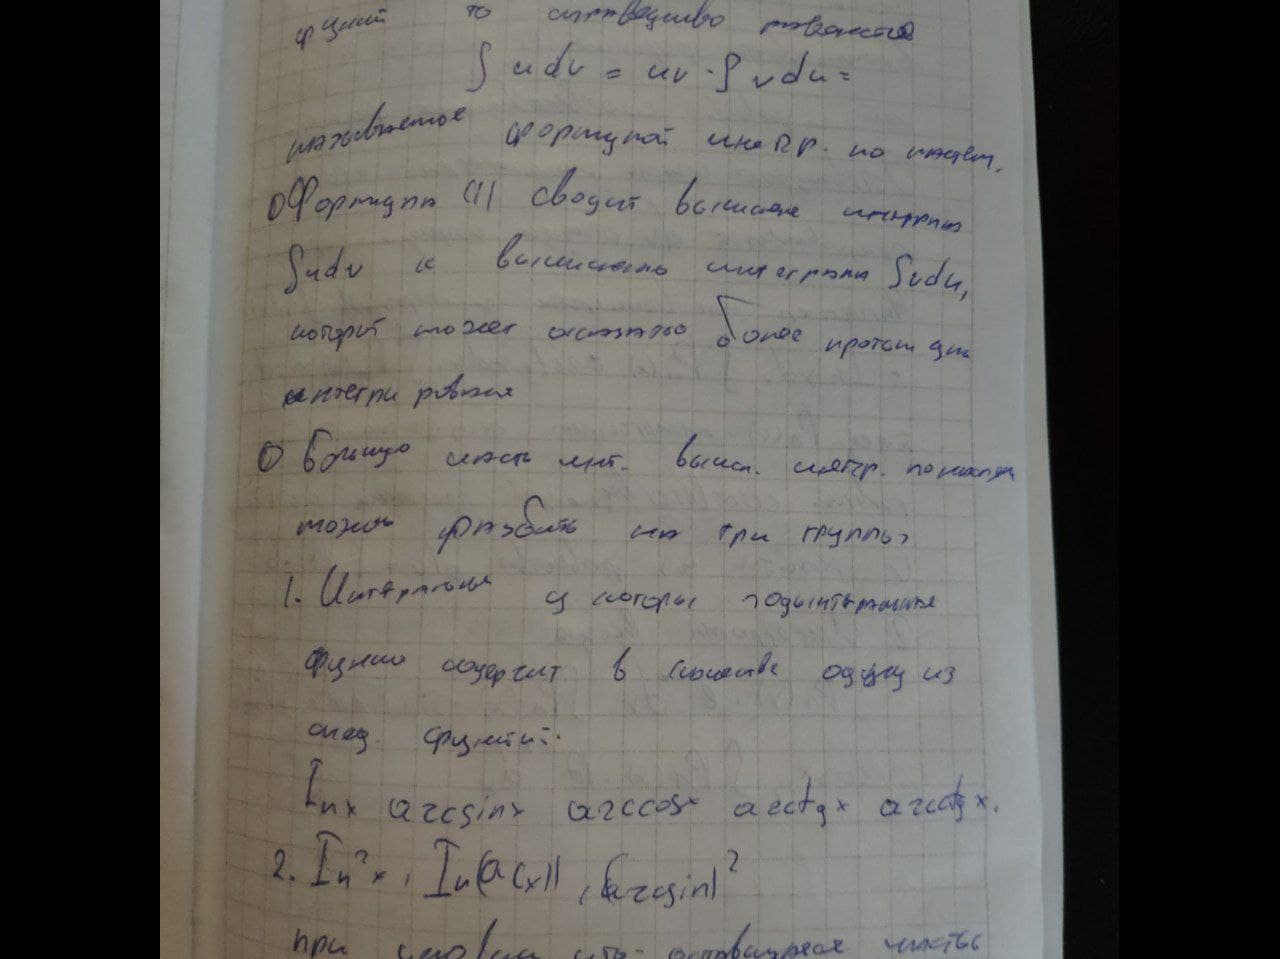 функций то справедливо равенство
∫ u dv = uv - ∫ v du =
называемое формулой интегр. по частям.
Формула (1) сводит вычисление интеграла
∫udv к вычислению интеграла ∫vdu,
который может оказаться более простым для
интегрирования
Большую часть инт. вычисл. интегр. по частям
можно разбить на три группы
1. Интегралы у которых подынтегральная
функцию содержит в качестве одну из
след. функций:
Inx arcsinx arccosx arctgx arcctgx.
2. In²x, In(a(x)), (arcsin)²
при что оставшаяся часть